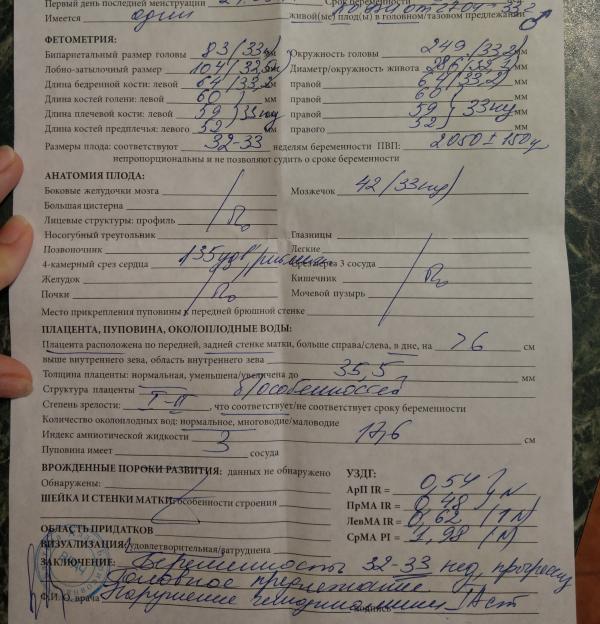 Первый день последней менструации
Имеется один живой(ые) плод(ы) в головном/тазовом предлежании
ФЕТОМЕТРИЯ:
Бипариетальный размер головы 83/33 мм Окружность головы 249/33,2 мм
Лобно-затылочный размер 104/ мм Диаметр/окружность живота 286/ мм
Длина бедренной кости: левой 64/33,2 мм правой 64/33,2 мм
Длина костей голени: левой 60 мм правой 60 мм
Длина плечевой кости: левой 59 мм правой 59 33 нед мм
Длина костей предплечья: левого 52 мм правого 52 мм
Размеры плода: соответствуют 32-33 неделям беременности ПВП: 2050 ± 150 г
непропорциональны и не позволяют судить о сроке беременности
АНАТОМИЯ ПЛОДА:
Боковые желудочки мозга Мозжечок 42 /33 нед/
Большая цистерна
Лицевые структуры: профиль
Носогубный треугольник Глазницы
Позвоночник Легкие
4-камерный срез сердца 135 уд/ Срез через 3 сосуда
Желудок Кишечник
Почки Мочевой пузырь
Место прикрепления пуповины к передней брюшной стенке
ПЛАЦЕНТА, ПУПОВИНА, ОКОЛОПЛОДНЫЕ ВОДЫ:
Плацента расположена по передней, задней стенке матки, больше справа/слева, в дне, на >6 см
выше внутреннего зева, область внутреннего зева
Толщина плаценты: нормальная, уменьшена/увеличена до 35,5 мм
Структура плаценты б/особенностей
Степень зрелости: I-II, что соответствует/не соответствует сроку беременности
Количество околоплодных вод: нормальное, многоводие/маловодие
Индекс амниотической жидкости 17,6 см
Пуповина имеет 3 сосуда
ВРОЖДЕННЫЕ ПОРОКИ РАЗВИТИЯ: данных не обнаружено
Обнаружены:
УЗДГ:
ШЕЙКА И СТЕНКИ МАТКИ: особенности строения
АрП IR = 0,54
ПрМА IR = 0,48 N
ЛевМА IR = 0,62
СрМА PI = 1,98 (N)
ОБЛАСТЬ ПРИДАТКОВ
ВИЗУАЛИЗАЦИЯ: удовлетворительная/затруднена
ЗАКЛЮЧЕНИЕ: Беременность 32-33 нед, прогресс
Головное предлежание.
Ф.И.О. врача Нарушение гемодинамики IA ст
подпись